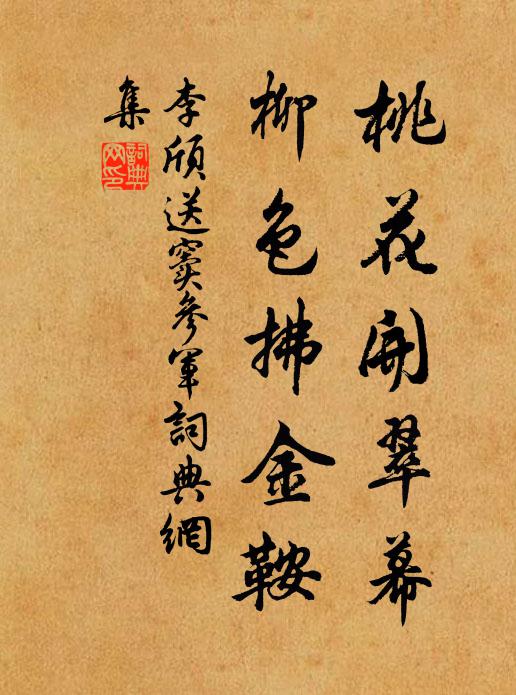 桃花開翠幕
柳色拂金鞍
李頎送竇參軍詞典網
集
詞典網印